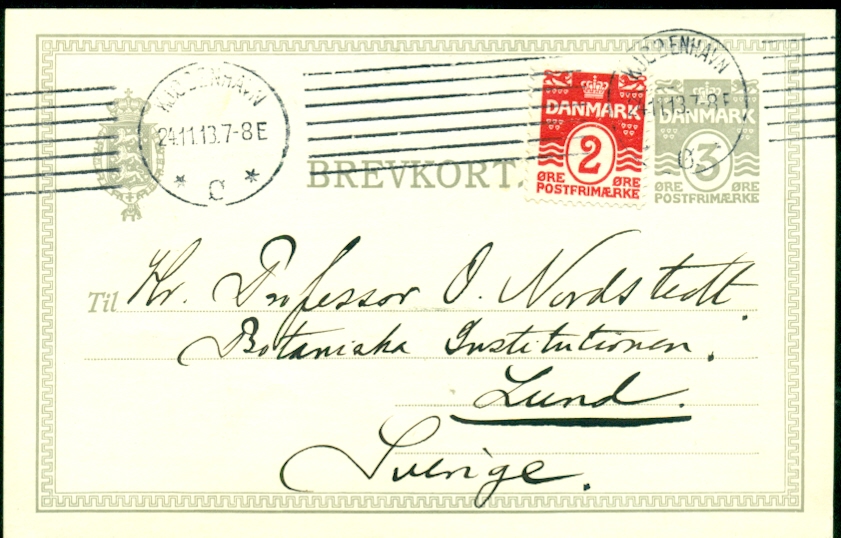 KJØBENHAVN
24.11.13.7-8 E
* C *
KJØBENHAVN
24.11.13.7-8 E
C
BREVKORT.
DANMARK
2
ØRE ØRE
POSTFRIMÆRKE
DANMARK
3
ØRE ØRE
POSTFRIMÆRKE
Til Hr. Professor O. Nordstedt.
Botaniska Institutionen.
Lund.
Sverige.